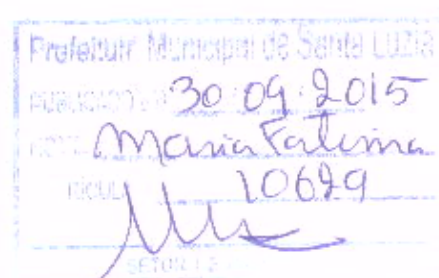 Prefeitura Municipal de Santa Luzia
PUBLICADO EM 30 09 2015
NOME Maria Fatima
10629
SETOR